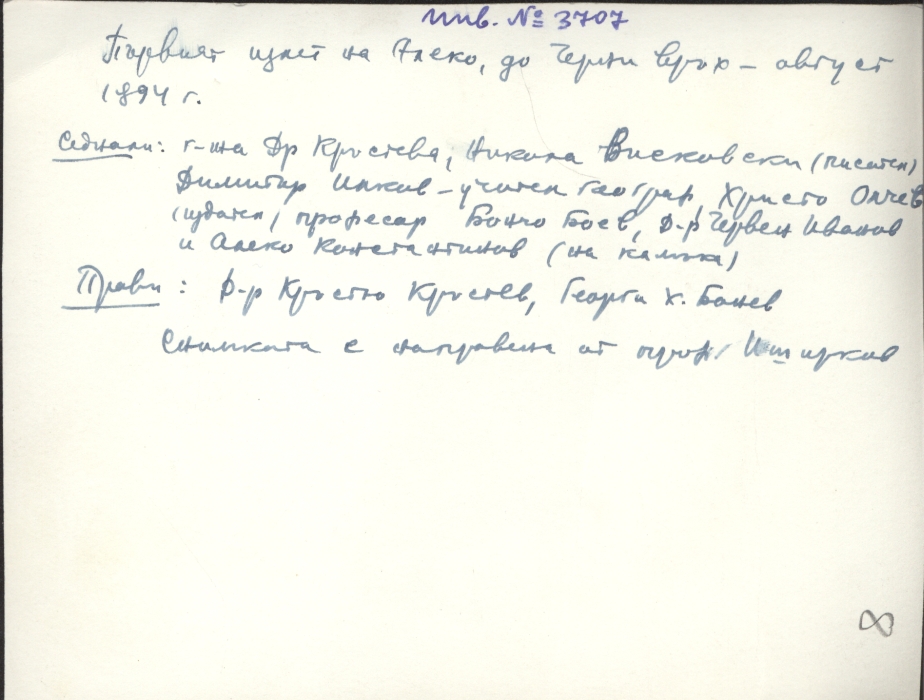 инв. № 3707
Първият излет на Алеко, до Черни връх – август
1894 г.
Седнали: г-жа Др Кръстева, Никола Висковски (писател)
Димитър Илков – учител географ, Христо Олчев
(издател) професор Бончо Боев, Д-р Червен Иванов
и Алеко Константинов (на камъка)
Прави: Д-р Кръстю Кръстев, Георги х. Бонев
Снимката е направена от проф/ Иширков
8